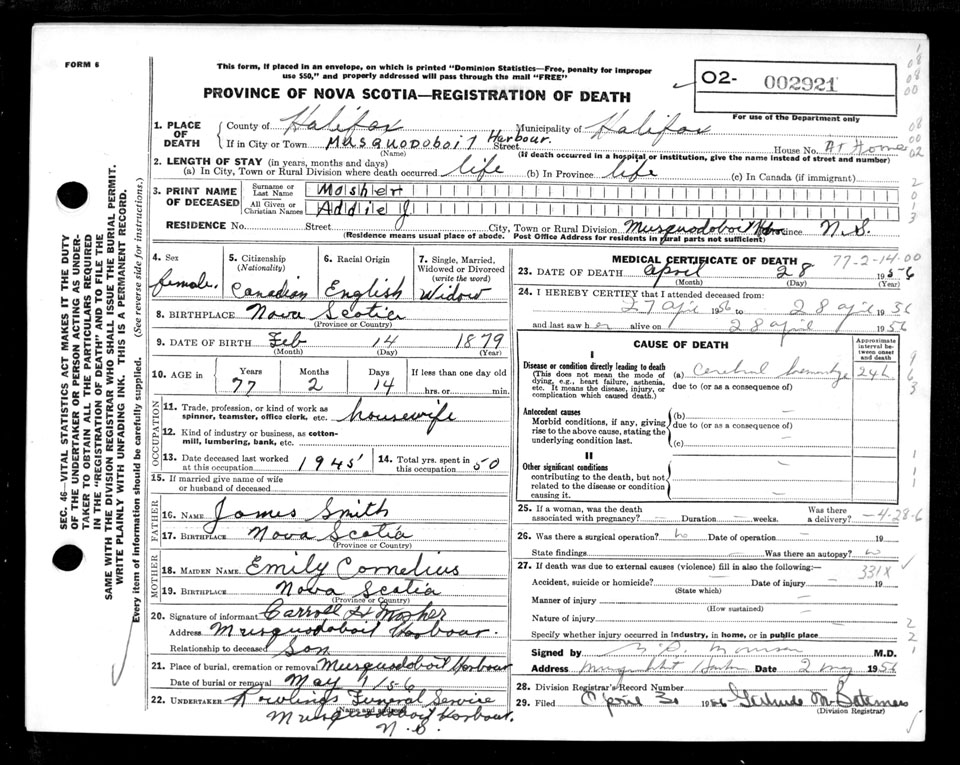 FORM 6
This form, if placed in an envelope, on which is printed "Dominion Statistics—Free, penalty for improper
use $50," and properly addressed will pass through the mail "FREE"
PROVINCE OF NOVA SCOTIA—REGISTRATION OF DEATH
O2- 002921
For use of the Department only
1. PLACE OF DEATH
County of Halifax Municipality of Halifax
If in City or Town Musquodoboit Harbour. Street House No. At Home
(Name) (If death occurred in a hospital or institution, give the name instead of street and number)
2. LENGTH OF STAY (in years, months and days)
(a) In City, Town or Rural Division where death occurred life (b) In Province life (c) In Canada (if immigrant)
3. PRINT NAME OF DECEASED
Surname or Last Name Mosher
All Given or Christian Names Addie J
RESIDENCE No. Street City, Town or Rural Division Musquodoboit Hbr Province N.S.
(Residence means usual place of abode. Post Office Address for residents in rural parts not sufficient)
4. Sex female.
5. Citizenship (Nationality) Canadian
6. Racial Origin English
7. Single, Married, Widowed or Divorced (write the word) Widow
8. BIRTHPLACE Nova Scotia
(Province or Country)
9. DATE OF BIRTH Feb 14 1879
(Month) (Day) (Year)
10. AGE in Years Months Days If less than one day old
77 2 14 hrs. or min.
OCCUPATION
11. Trade, profession, or kind of work as
spinner, teamster, office clerk, etc. housewife
12. Kind of industry or business, as cotton-
mill, lumbering, bank, etc.
13. Date deceased last worked at this occupation 1945
14. Total yrs. spent in this occupation 50
15. If married give name of wife
or husband of deceased
FATHER
16. NAME James Smith
17. BIRTHPLACE Nova Scotia
(Province or Country)
MOTHER
18. MAIDEN NAME Emily Cornelius
19. BIRTHPLACE Nova Scotia
(Province or Country)
20. Signature of informant Carroll Mosher
Address Musquodoboit Harbour.
Relationship to deceased Son
21. Place of burial, cremation or removal Musquodoboit Harbour
Date of burial or removal May 1/56
22. UNDERTAKER Rowlings Funeral Service
(Name and address)
Musquodoboit Harbour.
N.S.
MEDICAL CERTIFICATE OF DEATH 77-2-14-00
23. DATE OF DEATH April 28 1956
(Month) (Day) (Year)
24. I HEREBY CERTIFY that I attended deceased from:
27 April 1956 to 28 april 1956
and last saw her alive on 28 april 1956
CAUSE OF DEATH
Approximate interval between onset and death
I
Disease or condition directly leading to death
(This does not mean the mode of
dying, e.g., heart failure, asthenia,
etc. It means the disease, injury, or
complication which caused death.)
(a) Cerebral 24 h
due to (or as a consequence of)
Antecedent causes
Morbid conditions, if any, giving
rise to the above cause, stating the
underlying condition last.
(b) —
due to (or as a consequence of)
(c) —
II
Other significant conditions
contributing to the death, but not
related to the disease or condition
causing it.
25. If a woman, was the death
associated with pregnancy? — Duration — weeks. Was there a delivery? — 4-28-6
26. Was there a surgical operation? no Date of operation — 19
State findings Was there an autopsy? no
27. If death was due to external causes (violence) fill in also the following: 331X
Accident, suicide or homicide? Date of injury 19
(State which)
Manner of injury
(How sustained)
Nature of injury
Specify whether injury occurred in industry, in home, or in public place
Signed by M.D.
Address Date 2 May 1956
28. Division Registrar's Record Number
29. Filed April 30 1956 Gertrude M
(Division Registrar)
SEC. 46—VITAL STATISTICS ACT MAKES IT THE DUTY
OF THE UNDERTAKER OR PERSON ACTING AS UNDER-
TAKER TO OBTAIN ALL THE PARTICULARS REQUIRED
IN THE "REGISTRATION OF DEATH" AND TO FILE THE
SAME WITH THE DIVISION REGISTRAR WHO SHALL ISSUE THE BURIAL PERMIT.
WRITE PLAINLY WITH UNFADING INK. THIS IS A PERMANENT RECORD.
Every item of information should be carefully supplied. (See reverse side for instructions.)